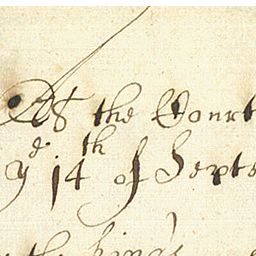 At the Court
yᵉ 14th of Septe
the king's